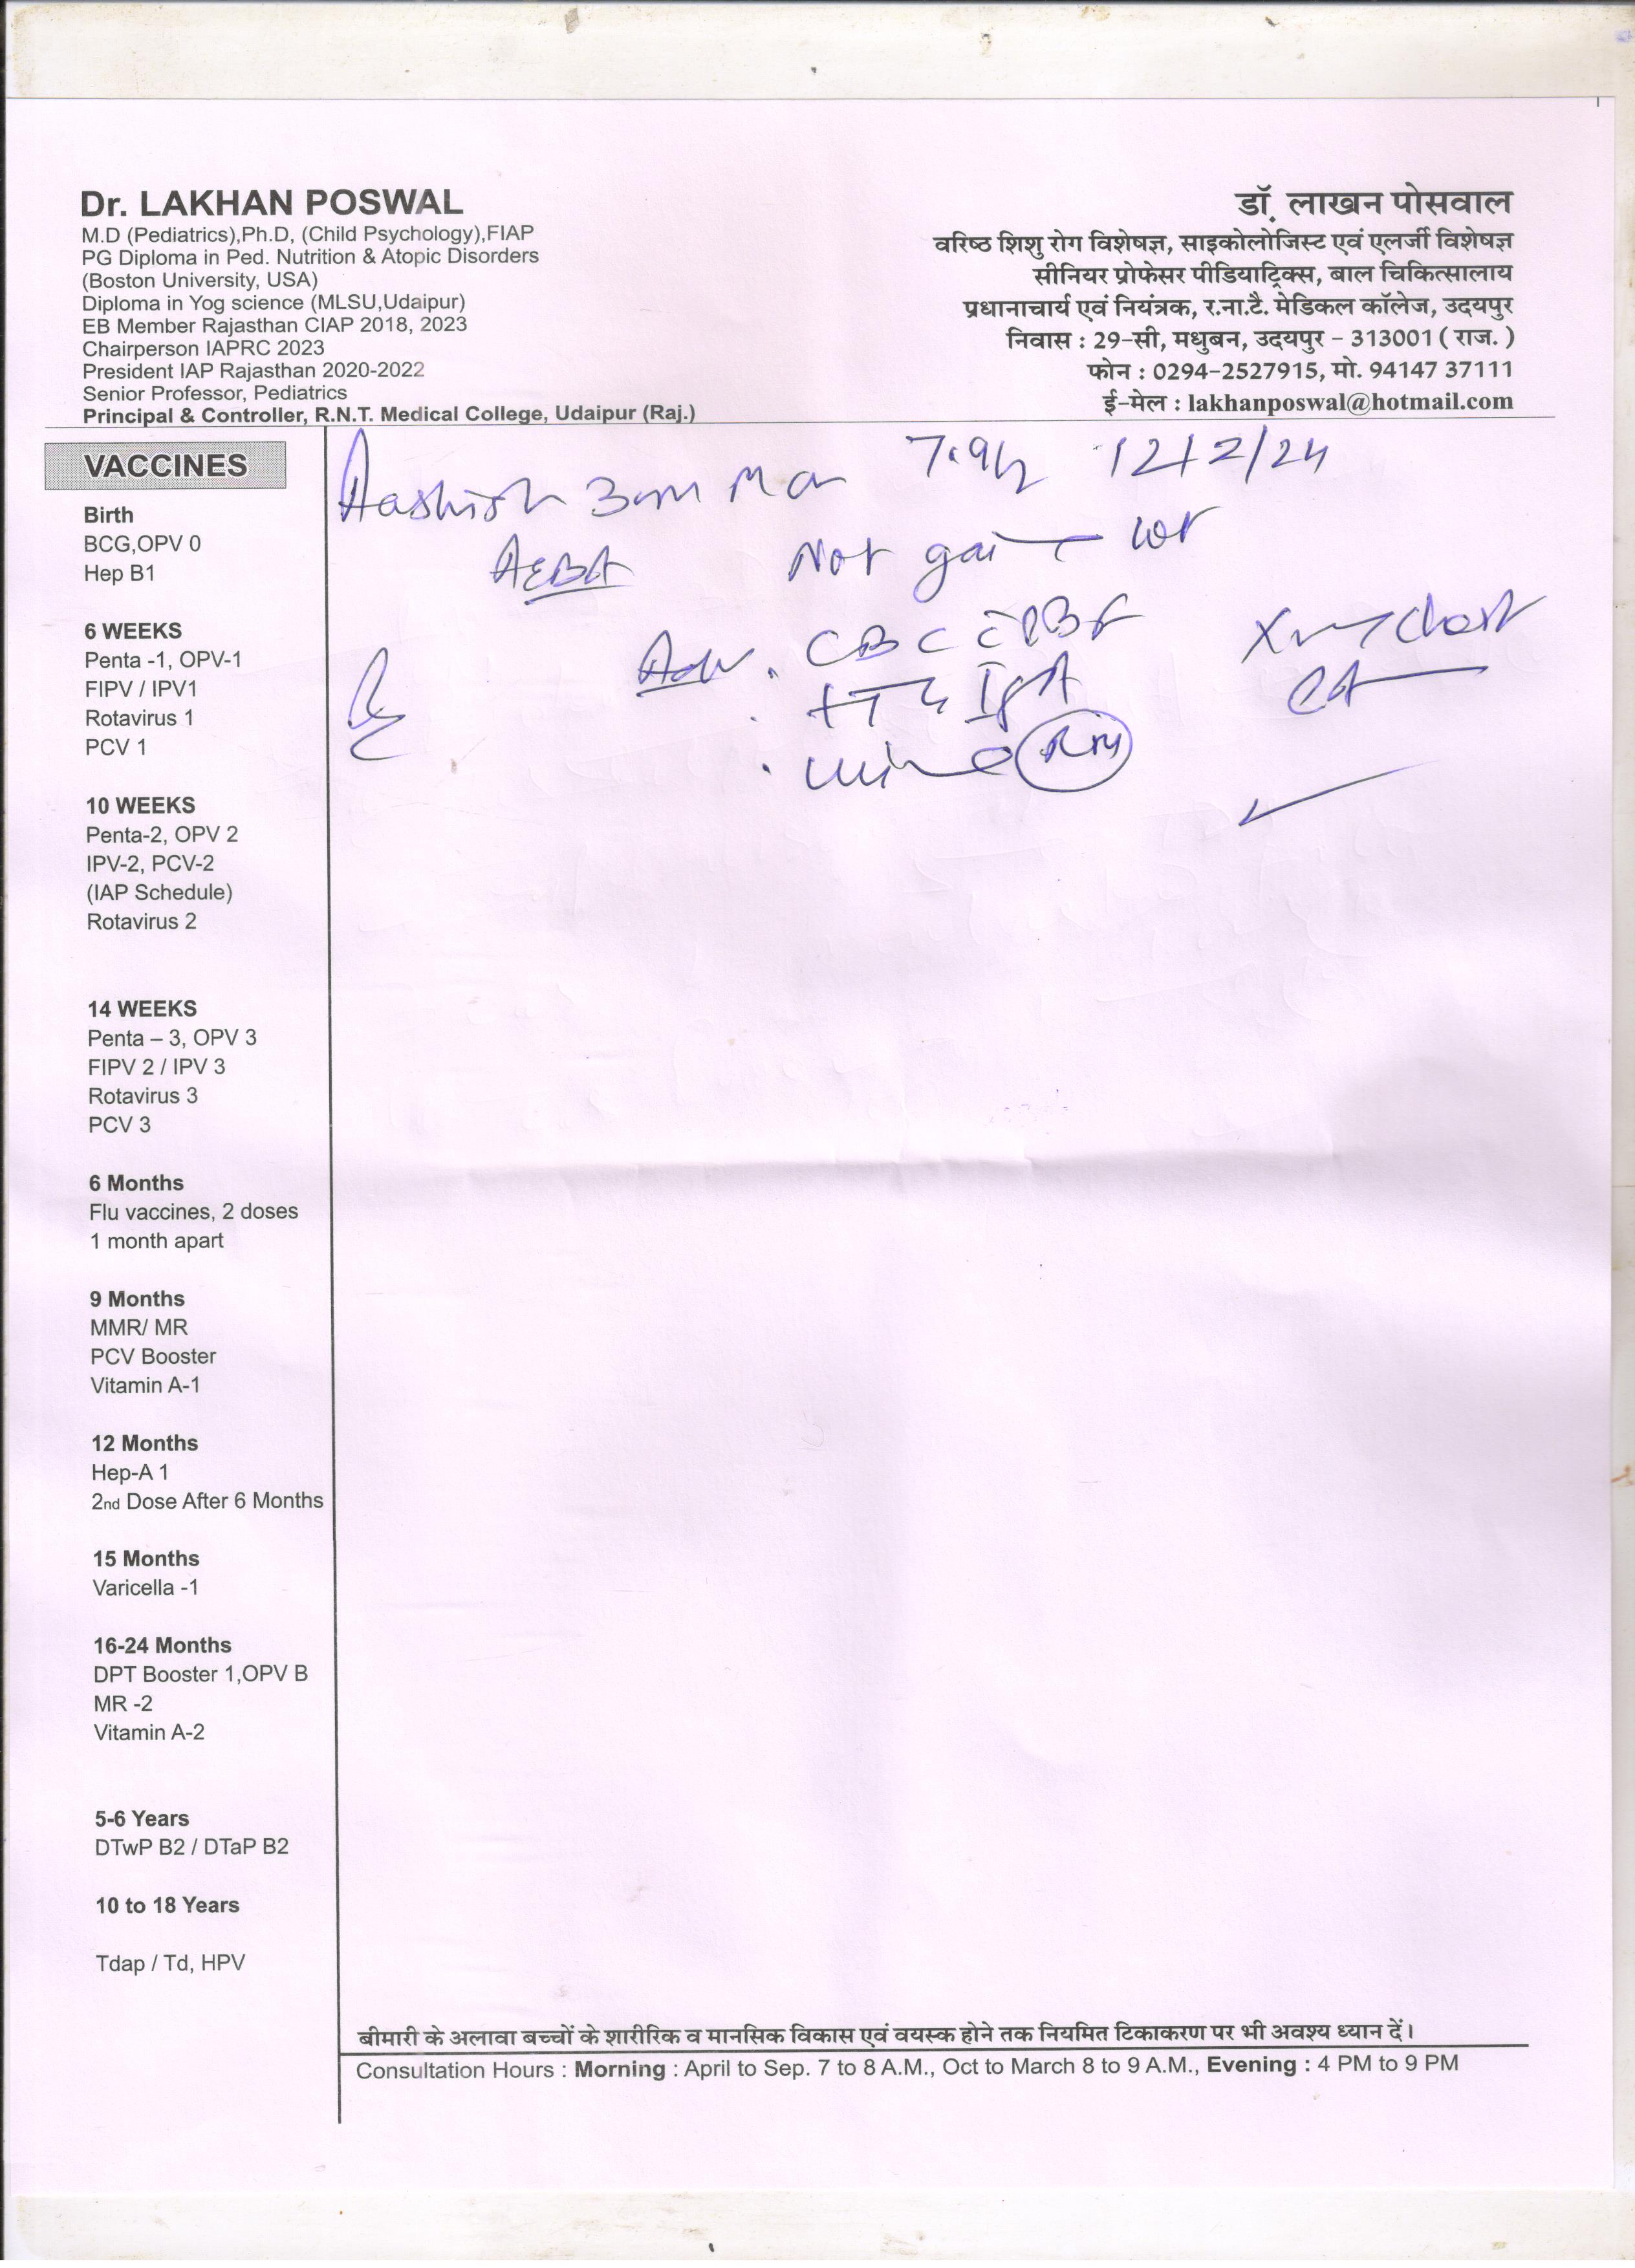 Dr. LAKHAN POSWAL
M.D (Pediatrics),Ph.D, (Child Psychology),FIAP
PG Diploma in Ped. Nutrition & Atopic Disorders
(Boston University, USA)
Diploma in Yog science (MLSU,Udaipur)
EB Member Rajasthan CIAP 2018, 2023
Chairperson IAPRC 2023
President IAP Rajasthan 2020-2022
Senior Professor, Pediatrics
Principal & Controller, R.N.T. Medical College, Udaipur (Raj.)
डॉ. लाखन पोसवाल
वरिष्ठ शिशु रोग विशेषज्ञ, साइकोलोजिस्ट एवं एलर्जी विशेषज्ञ
सीनियर प्रोफेसर पीडियाट्रिक्स, बाल चिकित्सालाय
प्रधानाचार्य एवं नियंत्रक, र.ना.टै. मेडिकल कॉलेज, उदयपुर
निवास : 29-सी, मधुबन, उदयपुर - 313001 ( राज. )
फोन : 0294-2527915, मो. 94147 37111
ई-मेल : lakhanposwal@hotmail.com
VACCINES
Birth
BCG,OPV 0
Hep B1
6 WEEKS
Penta -1, OPV-1
FIPV / IPV1
Rotavirus 1
PCV 1
10 WEEKS
Penta-2, OPV 2
IPV-2, PCV-2
(IAP Schedule)
Rotavirus 2
14 WEEKS
Penta – 3, OPV 3
FIPV 2 / IPV 3
Rotavirus 3
PCV 3
6 Months
Flu vaccines, 2 doses
1 month apart
9 Months
MMR/ MR
PCV Booster
Vitamin A-1
12 Months
Hep-A 1
2nd Dose After 6 Months
15 Months
Varicella -1
16-24 Months
DPT Booster 1,OPV B
MR -2
Vitamin A-2
5-6 Years
DTwP B2 / DTaP B2
10 to 18 Years
Tdap / Td, HPV
Aashish 12/2/24
Not wt
Adv. CBC PBF Xray Chest
TTG IgA
Urine
बीमारी के अलावा बच्चों के शारीरिक व मानसिक विकास एवं वयस्क होने तक नियमित टिकाकरण पर भी अवश्य ध्यान दें।
Consultation Hours : Morning : April to Sep. 7 to 8 A.M., Oct to March 8 to 9 A.M., Evening : 4 PM to 9 PM